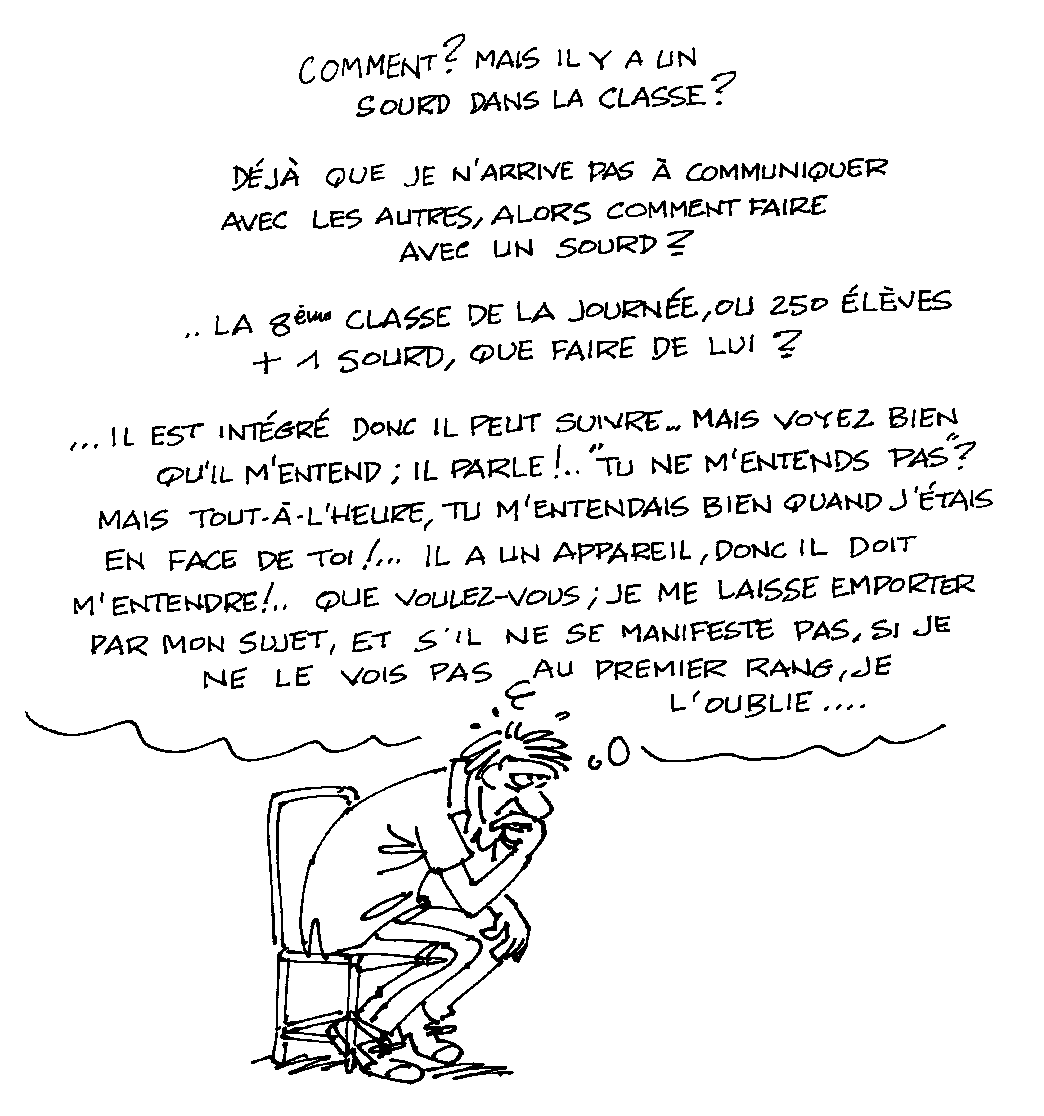 COMMENT? MAIS IL Y A UN
SOURD DANS LA CLASSE?
DÉJÀ QUE JE N'ARRIVE PAS À COMMUNIQUER
AVEC LES AUTRES, ALORS COMMENT FAIRE
AVEC UN SOURD?
.. LA 8ème CLASSE DE LA JOURNÉE, OU 250 ÉLÈVES
+ 1 SOURD, QUE FAIRE DE LUI ?
... IL EST INTÉGRÉ DONC IL PEUT SUIVRE.. MAIS VOYEZ BIEN
QU'IL M'ENTEND ; IL PARLE !.. "TU NE M'ENTENDS PAS"?
MAIS TOUT-À-L'HEURE, TU M'ENTENDAIS BIEN QUAND J'ÉTAIS
EN FACE DE TOI !... IL A UN APPAREIL, DONC IL DOIT
M'ENTENDRE!.. QUE VOULEZ-VOUS ; JE ME LAISSE EMPORTER
PAR MON SUJET, ET S'IL NE SE MANIFESTE PAS, SI JE
NE LE VOIS PAS AU PREMIER RANG, JE
L'OUBLIE ....